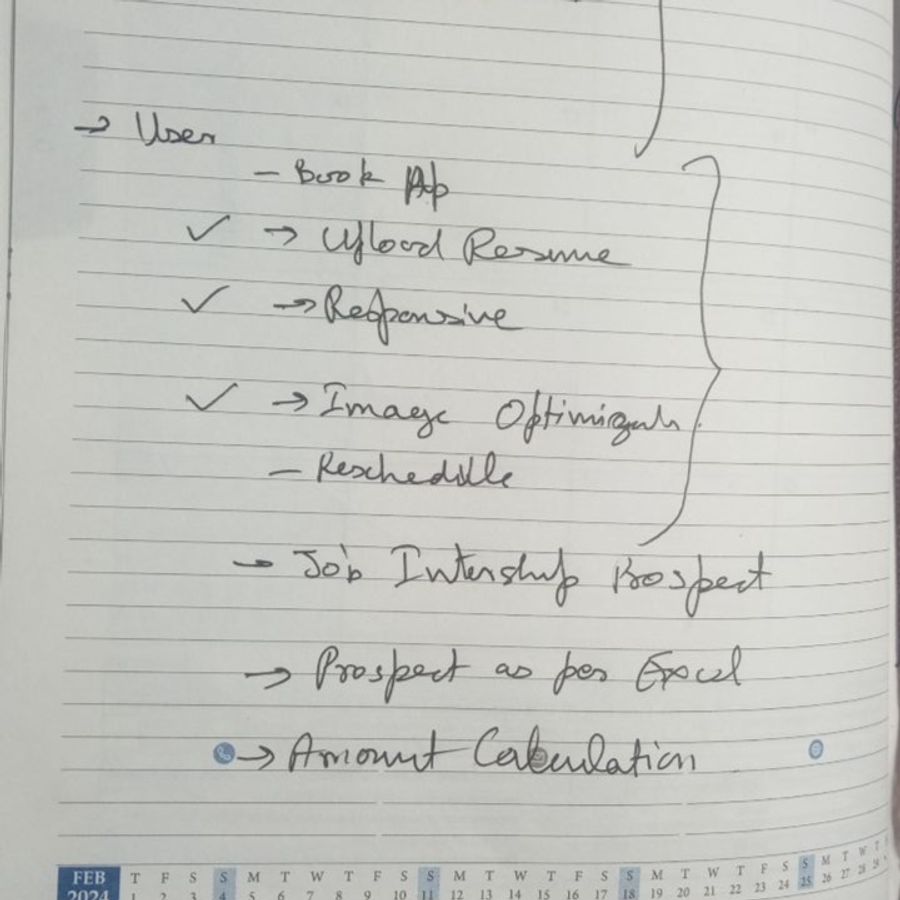 → User
- Book Ap
✓ → Upload Resume
✓ → Responsive
✓ → Image
- Reschedule
→ Job Internship Prospect
→ Prospect as per Excel
→ Amount Calculation
FEB T F S S M T W T F S S M T W T F S S M T W T F S S M T W T
2024 1 2 3 4 5 6 7 8 9 10 11 12 13 14 15 16 17 18 19 20 21 22 23 24 25 26 27 28 29